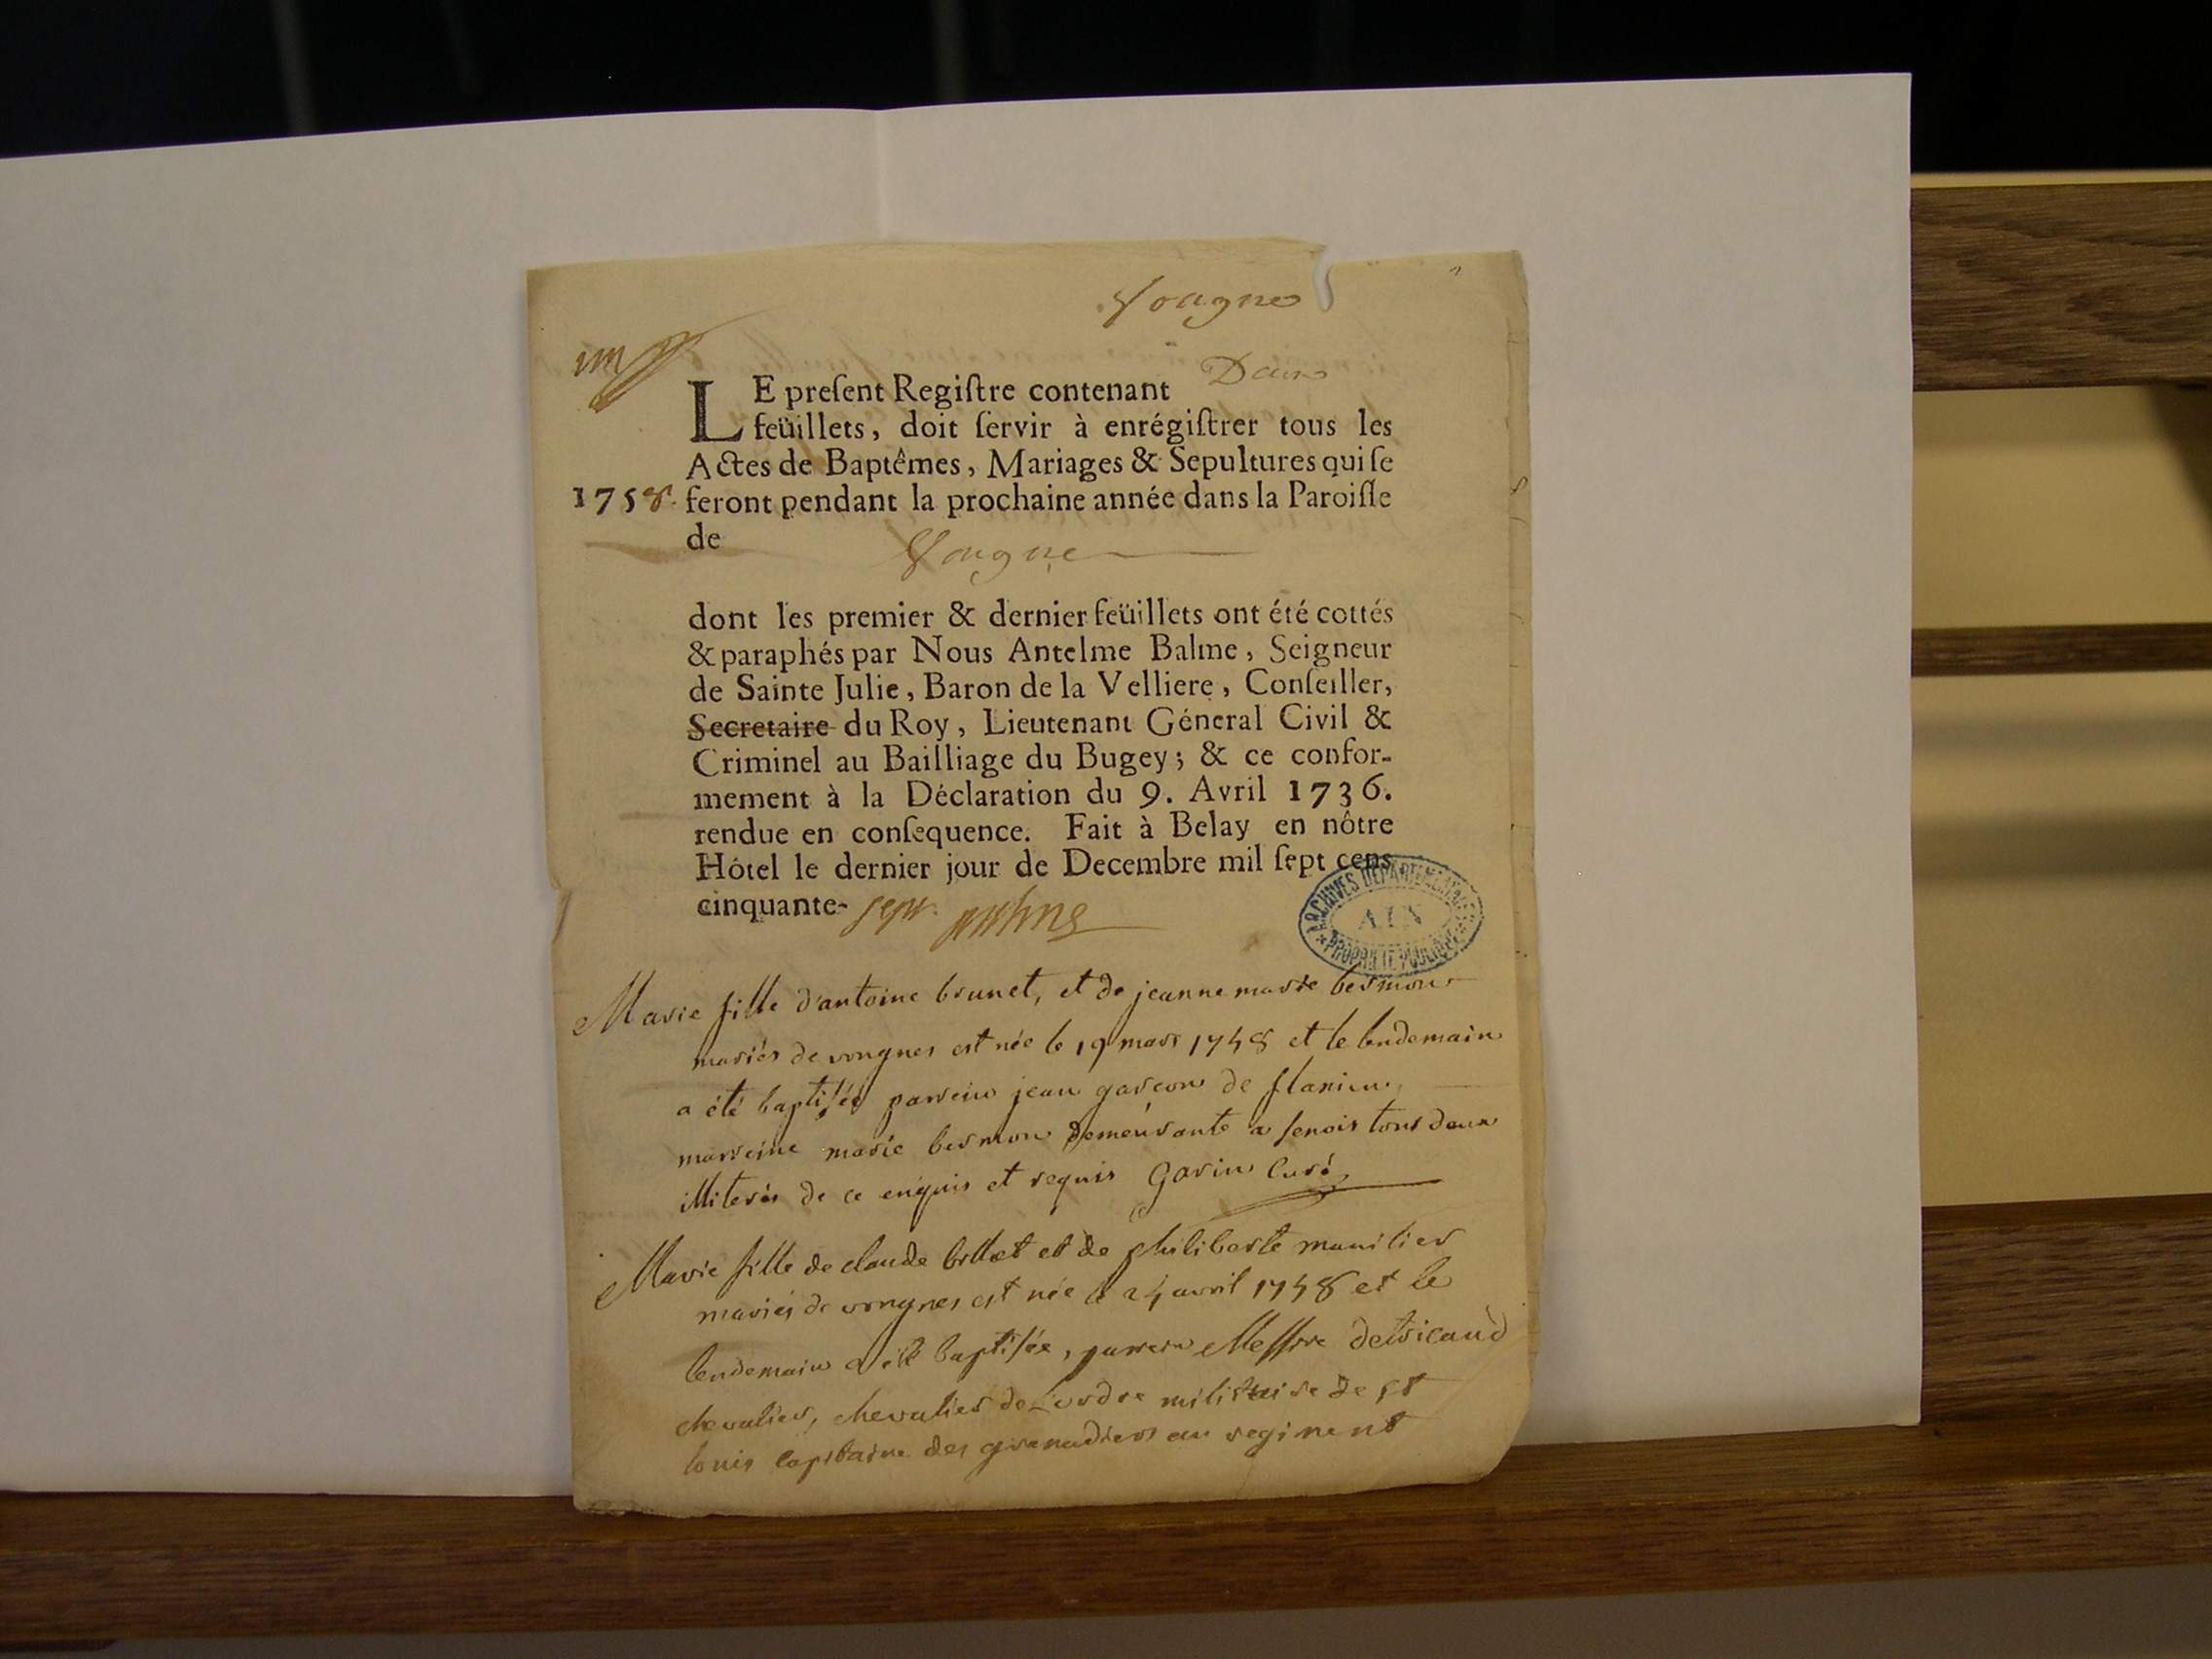 Vongne
LE preſent Regiſtre contenant Deux
feüillets, doit ſervir à enrégiſtrer tous les
Actes de Baptêmes, Mariages & Sepultures qui ſe
1758. feront pendant la prochaine année dans la Paroiſſe
de Vongne
dont les premier & dernier feüillets ont été cottés
& paraphés par Nous Antelme Balme, Seigneur
de Sainte Julie, Baron de la Velliere, Conſeiller,
Secretaire du Roy, Lieutenant Géneral Civil &
Criminel au Bailliage du Bugey; & ce confor-
mement à la Déclaration du 9. Avril 1736.
rendue en conſequence. Fait à Belay en nôtre
Hôtel le dernier jour de Decembre mil ſept cens
cinquante- sept.
ARCHIVES DEPARTEMENTALES AIN PROPRIETE PUBLIQUE
Marie fille d'antoine brunet, et de jeanne marie bermon
mariés de vongnes est née le 19 mars 1758 et le lendemain
a été baptisée parrein jean garcon de flaxieu
marreine marie bermon demeurante a senois tous deux
illiterés de ce enquis et requis Gavin Curé
Marie fille de claude brillat et de philiberte manilier
mariés de vongnes est née le 24 avril 1758 et le
lendemain a été baptisée, parrein Messire
chevalier, chevalier de L'ordre militaire de st
louis capitaine des grenadiers au regiment